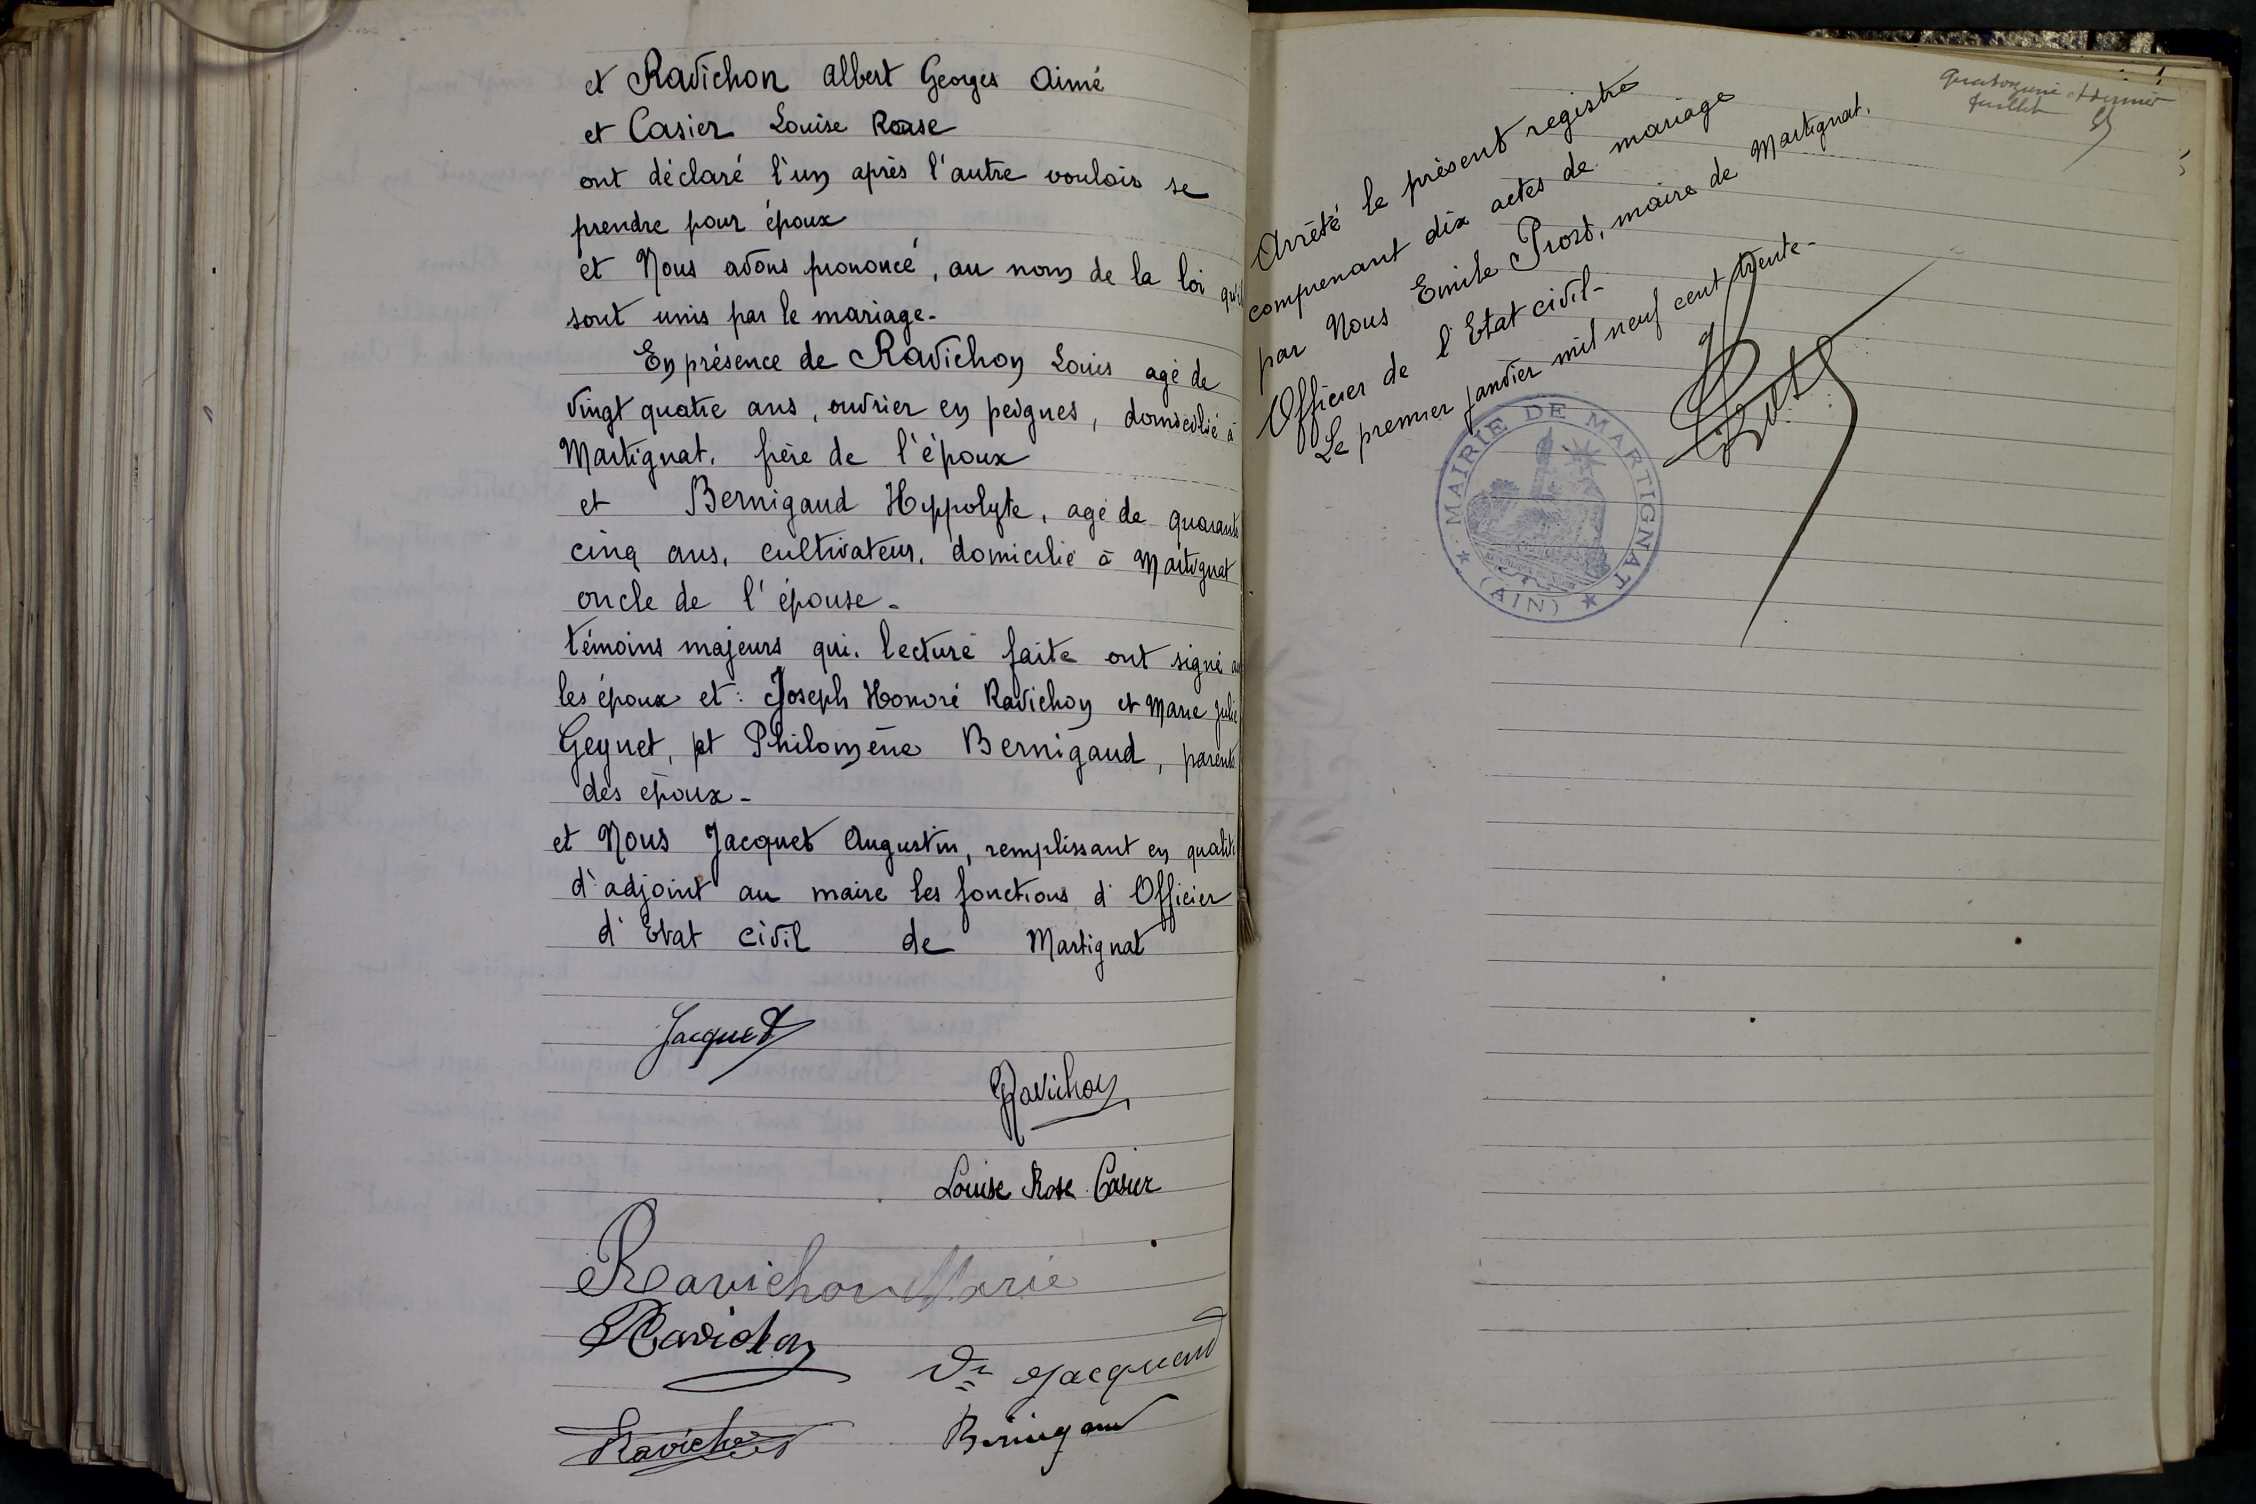 et Ravichon Albert Georges Aimé
et Casier Louise Rose
ont déclaré l'un après l'autre vouloir se
prendre pour époux
et Nous avons prononcé, au nom de la loi qu'il
sont unis par le mariage.
En présence de Ravichon Louis agé de
vingt quatre ans, ouvrier en peignes, domicilié à
Martignat. frère de l'époux
et Bernigaud Hyppolyte, agé de quarante
cinq ans, cultivateur, domicilié à Martignat
oncle de l'épouse.
témoins majeurs qui. lecture faite ont signé
les époux et: Joseph Honoré Ravichon et Marie Julie
Geynet, et Philomène Bernigaud, parents
des époux.
et Nous Jacquet Augustin, remplissant en qualité
d'adjoint au maire les fonctions d'Officier
d'Etat civil de Martignat
Jacquet
Ravichon
Louise Rose Casier
Ravichon Marie
Ravichon
Vve Jacquand
Ravichon
Bernigaud
Quatorzième et dernier
feuillet
Arrêté le présent registre
comprenant dix actes de mariage
par Nous Emile Prost, maire de Martignat.
Officier de l'Etat civil-
Le premier janvier mil neuf cent trente-
Prost
MAIRIE DE MARTIGNAT
(AIN)